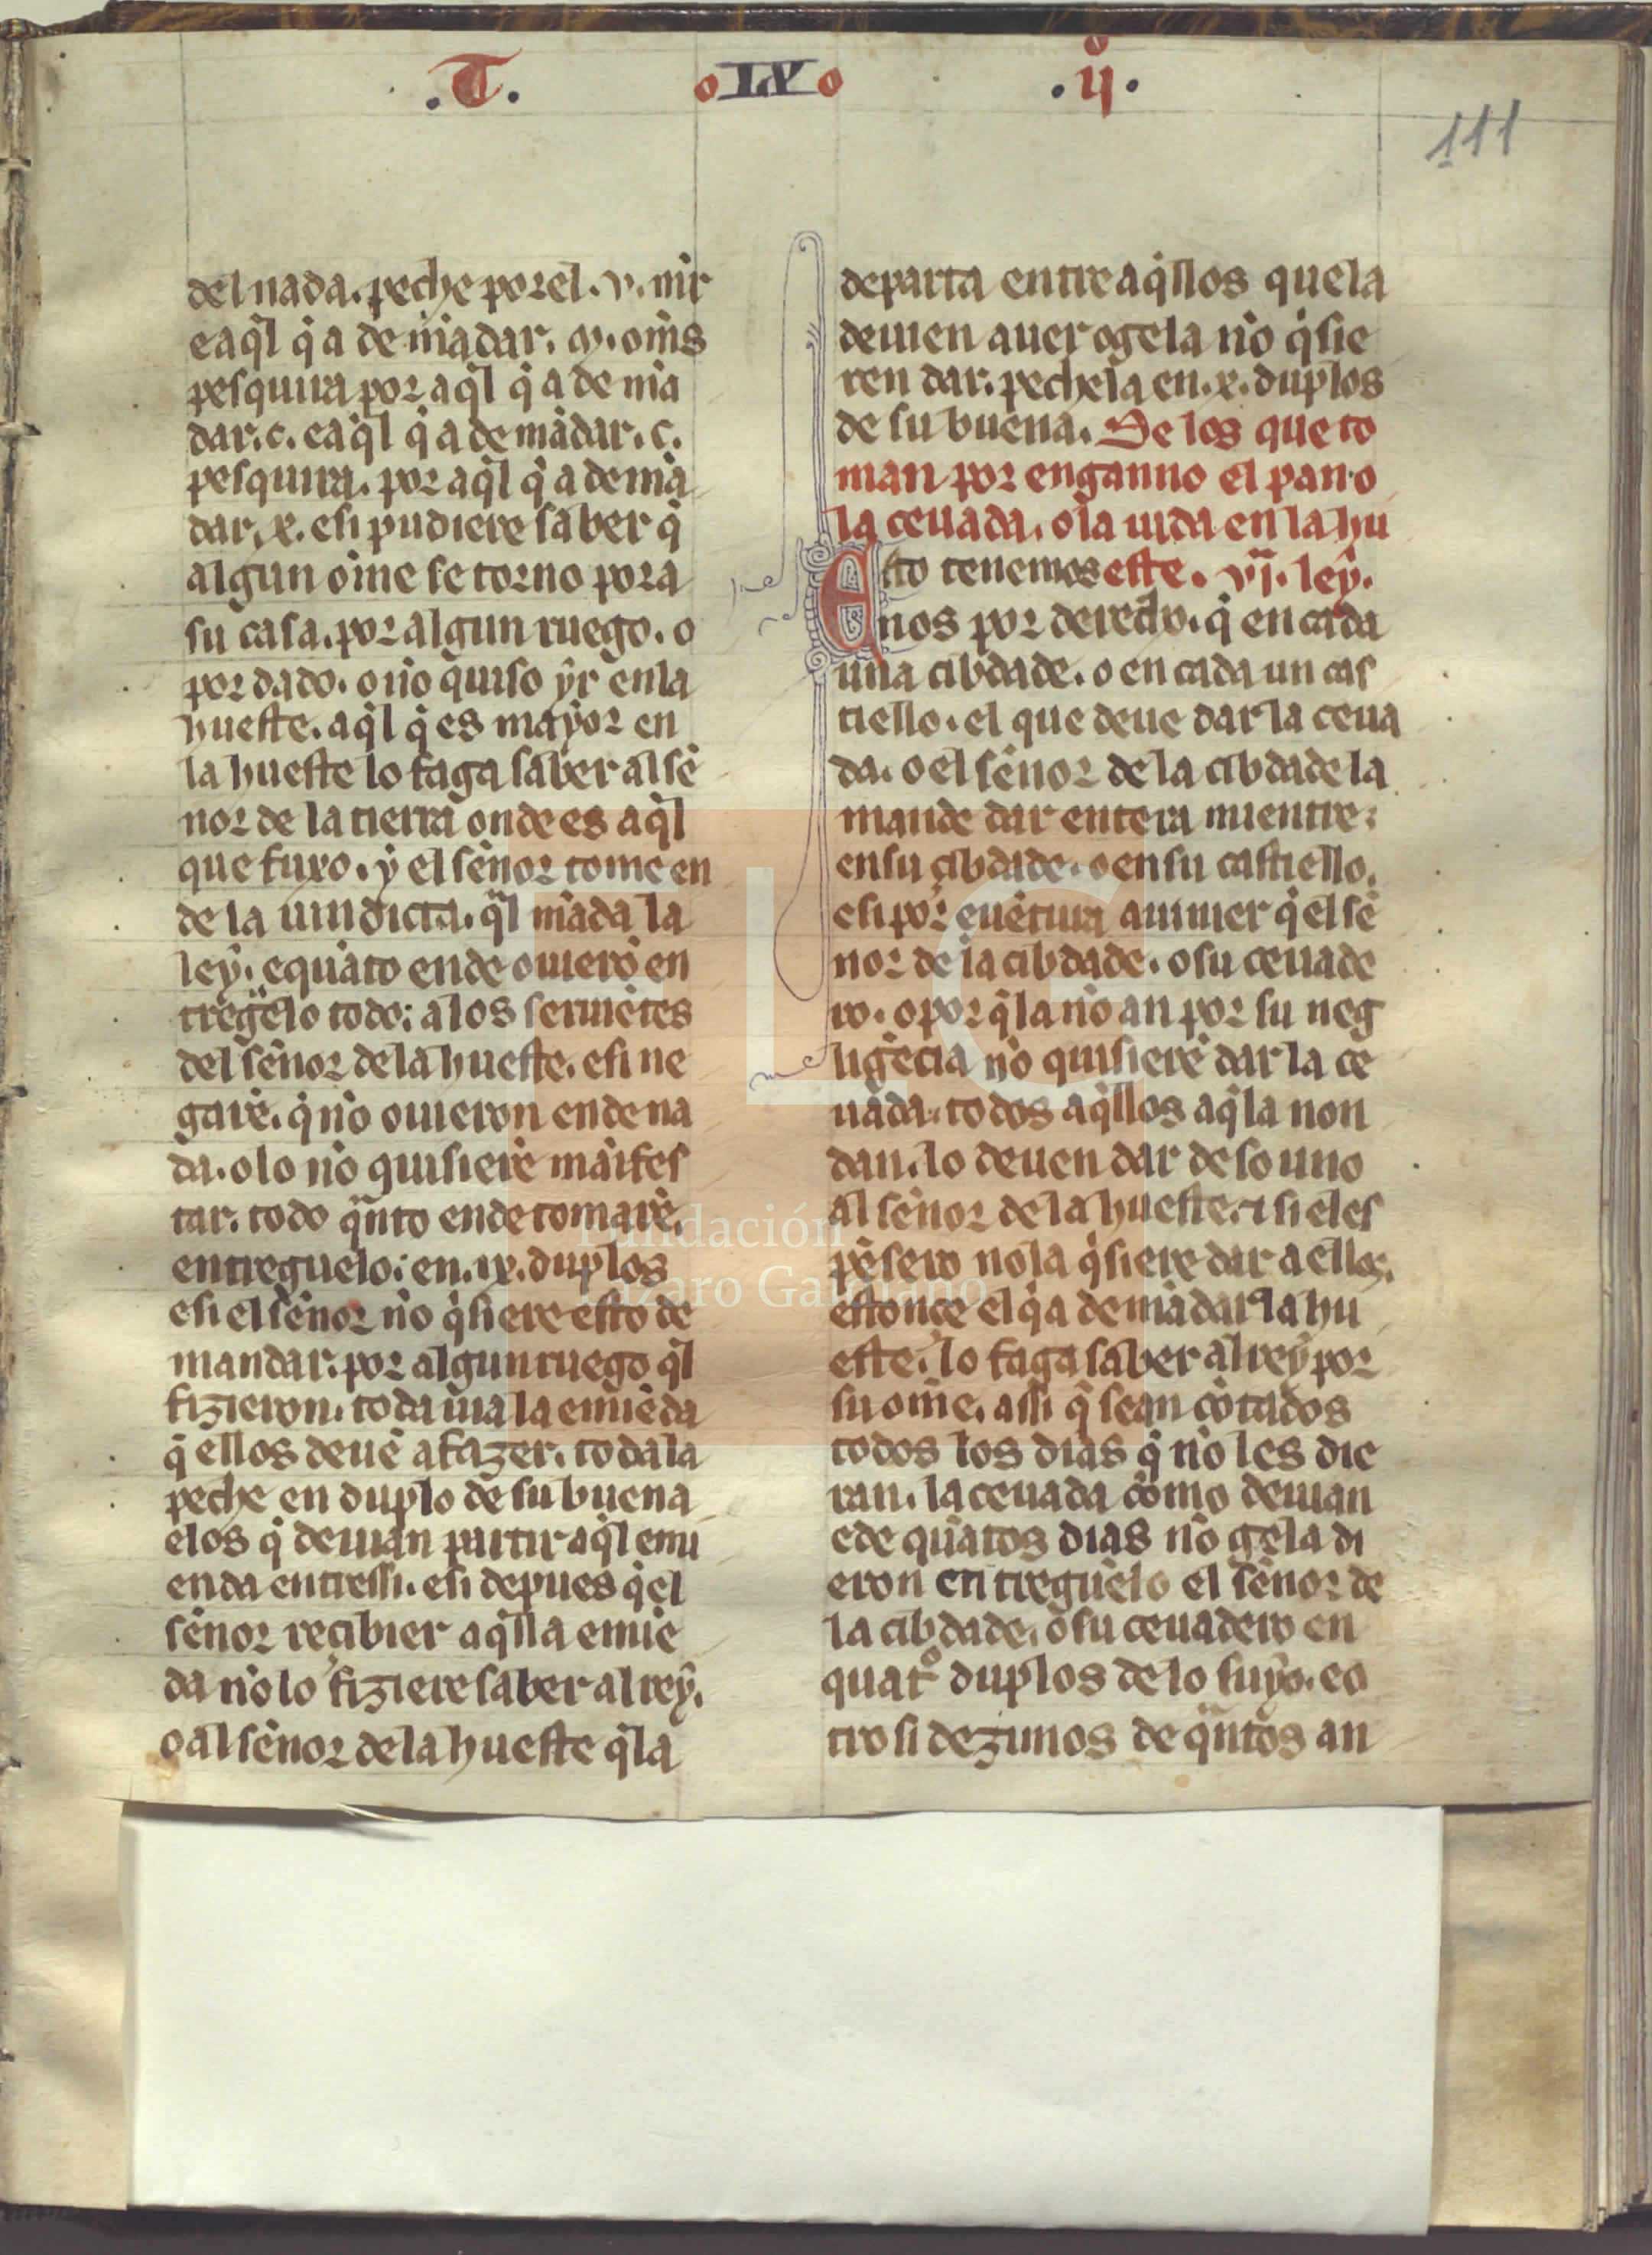 .T. IX .ij.
111
del nada. peche por el. v. mr̃
e aq̃l q̃ a de mãdar. m. oms̃
pesquira por aq̃l q̃ a de mã
dar. c. e aq̃l q̃ a de mãdar. c.
pesquira. por aq̃l q̃ a de mã
dar. x. e si pudiere saber q̃
algun om̃e se torno pora
su casa. por algun ruego. o
por dado. o nõ quiso yr en la
hueste. aq̃l q̃ es mayor en
la hueste lo faga saber al sẽ
nor de la tierra onde es aq̃l
que fuxo. y el sẽnor tome en
de la uindicta. q̃l mãda la
ley. e quãto ende ouierõ en
tregẽlo todo; a los seruiẽtes
del sẽnor de la hueste. e si ne
garẽ. q̃ nõ ouieron ende na
da. o lo nõ quisierẽ mãifes
tar. todo q̃nto ende tomarẽ.
entreguelo; en. ix. duplos
e si el sẽnor nõ q̃siere esto de
mandar. por algun ruego q̃l
fizieron. toda uia la emiẽda
q̃ ellos deuẽ a fazer. toda la
peche en duplo de su buena
e los q̃ deuian partir aq̃l emi
enda entressi. e si depues q̃ el
sẽnor recibier aq̃lla emiẽ
da nõ lo fiziere saber al rey.
o al sẽnor de la hueste q̃ la
departa entre aq̃llos que la
deuien auer o gela nõ q̃sie
ren dar. pechela en. x. duplos
de su buena. De los que to
man por enganno el pan o
la ceuada. o la uida en la hu
Esto tenemos este. vj. ley.
nos por derecho. q̃ en cada
una cibdade. o en cada un cas
tiello. el que deue dar la ceua
da. o el sẽnor de la cibdade la
mande dar entera mientre;
en su cibdade. o en su castiello.
e si por euẽtura auinier q̃ el sẽ
nor de la cibdade. o su ceuade
ro. o por q̃ la nõ an por su neg
ligẽcia nõ quisierẽ dar la ce
uada. todos aq̃llos a q̃ la non
dan. lo deuen dar de so uno
al sẽnor de la hueste. ⁊ si el es
pẽsero no la q̃siere dar a ellos.
estonçe el q̃ a de mãdar la hu
este. lo faga saber al rey por
su om̃e. assi q̃ sean cõtados
todos los dias q̃ nõ les die
ran. la ceuada como deuian
e de quãtos dias nõ gela di
eron entreguelo el sẽnor de
la cibdade. o su ceuadero en
quatᵒ duplos de lo suyo. e o
tro si dezimos de q̃ntos an
Fundación
Lázaro Galdiano